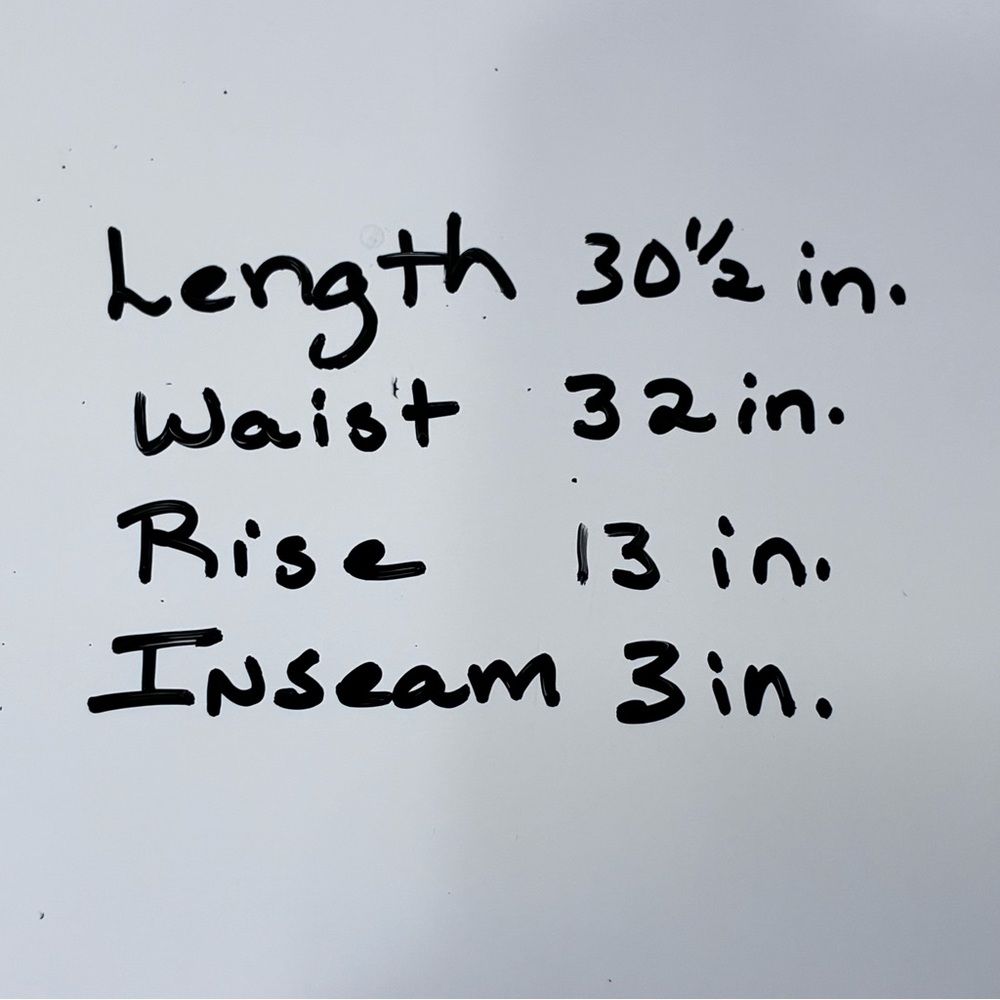 Length 30½ in.
Waist 32 in.
Rise 13 in.
Inseam 3 in.